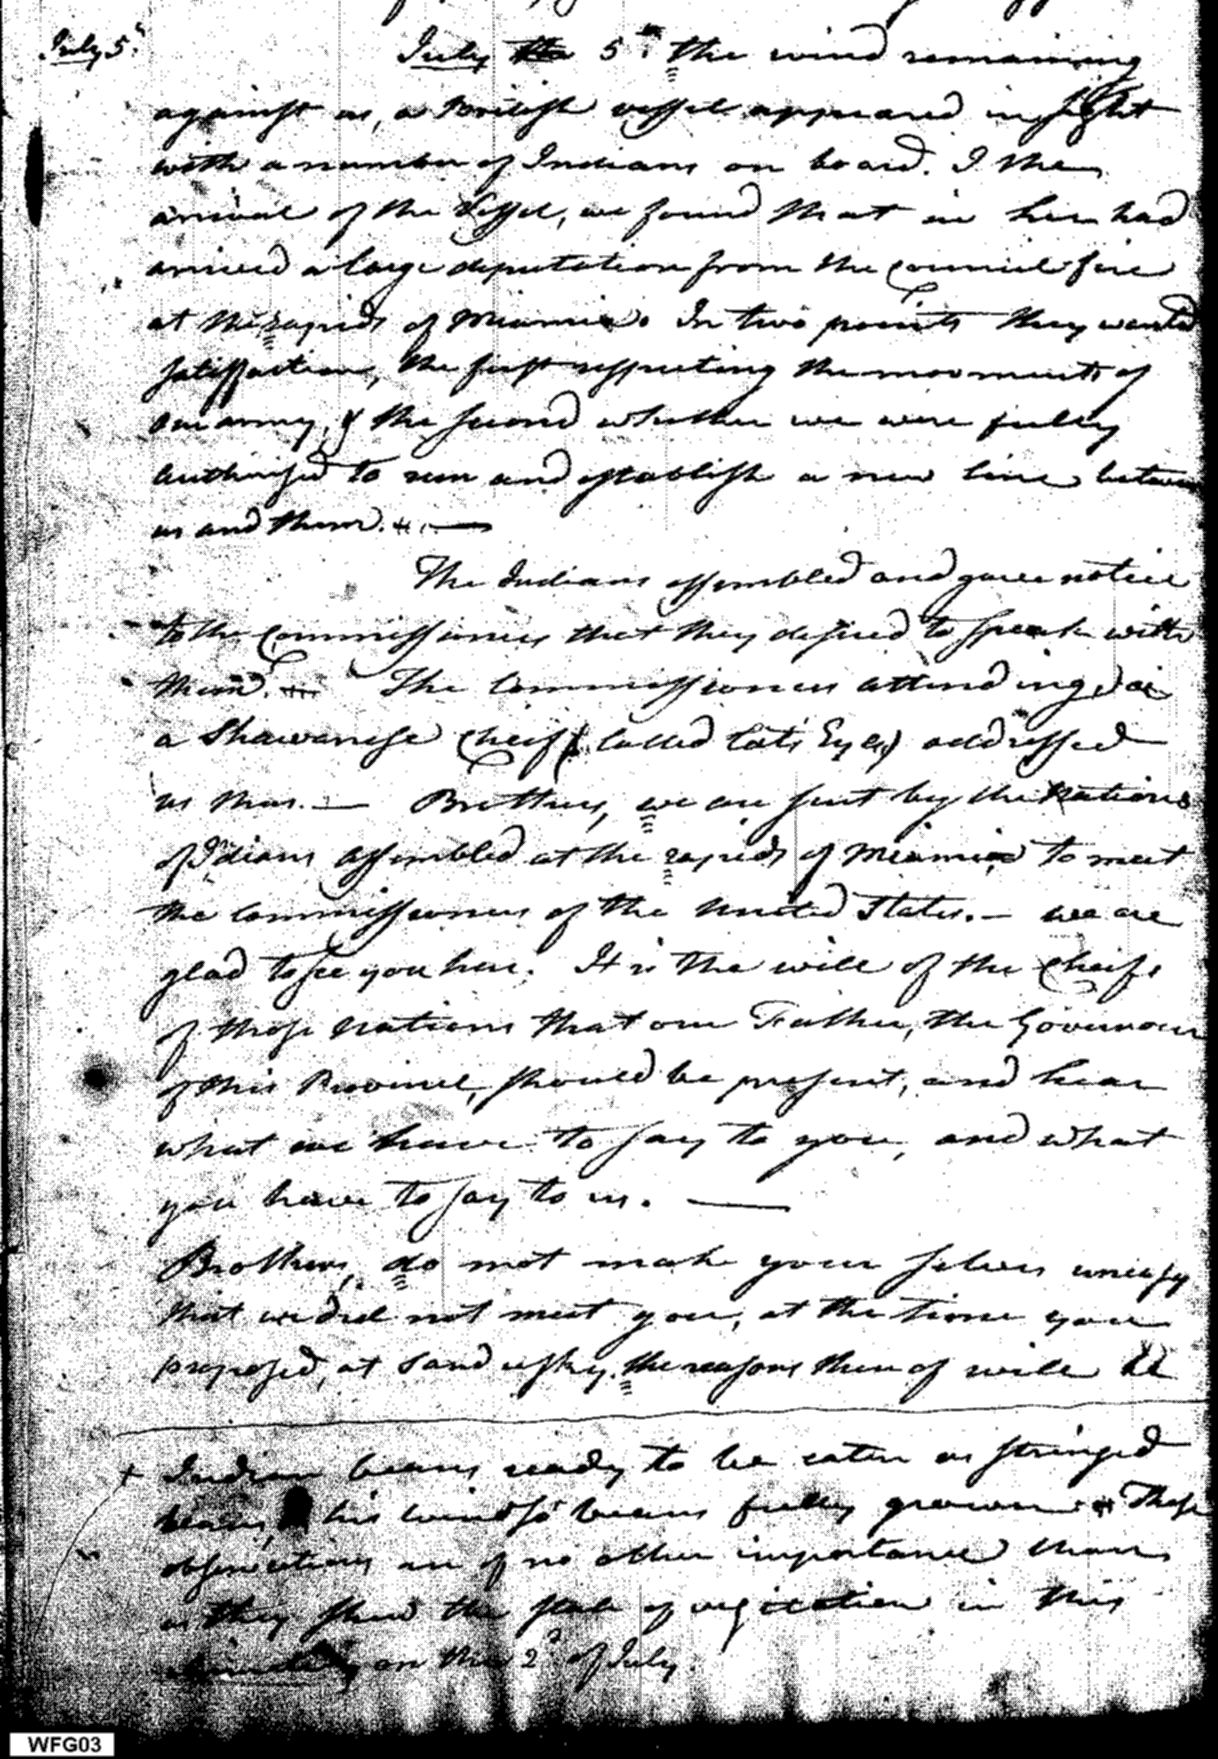 July 5th
July the 5th the wind remaining
against us, a British vessel appeared in sight
with a number of Indians on board. I the
arrival of the Vessel, we found that in her had
arrived a large deputation from the Council fire
at the rapids of Miamie. In two points they wanted
satisfaction, the first respecting the movements of
our army, & the second whether we were fully
authorised to run and establish a new line between
us and them.
The Indians assembled and gave notice
to the Commissioners that they desired to speak with
them. The Commissioners attending,
a Shawanese Cheif (called Cats Eyes) addressed
us thus. — Brothers, we are sent by the Nations
of Idians assembled at the rapids of Miamie to meet
the Commissioners of the United States. — we are
glad to see you here. It is the will of the Cheifs
of those Nations that our Father, the Governour
of this Province, should be present, and hear
what we have to say to you, and what
you have to say to us. —
Brothers, do not make your selves uneasy
that we did not meet you, at the time you
proposed, at Sandusky. the reasons there of will be
+ Indian beans ready to be eaten as stringed
beans, his windsor beans fully grown. These
observations are of no other importance than
as they shew the state of vegitation in this
on the 2d of July.
WFG03